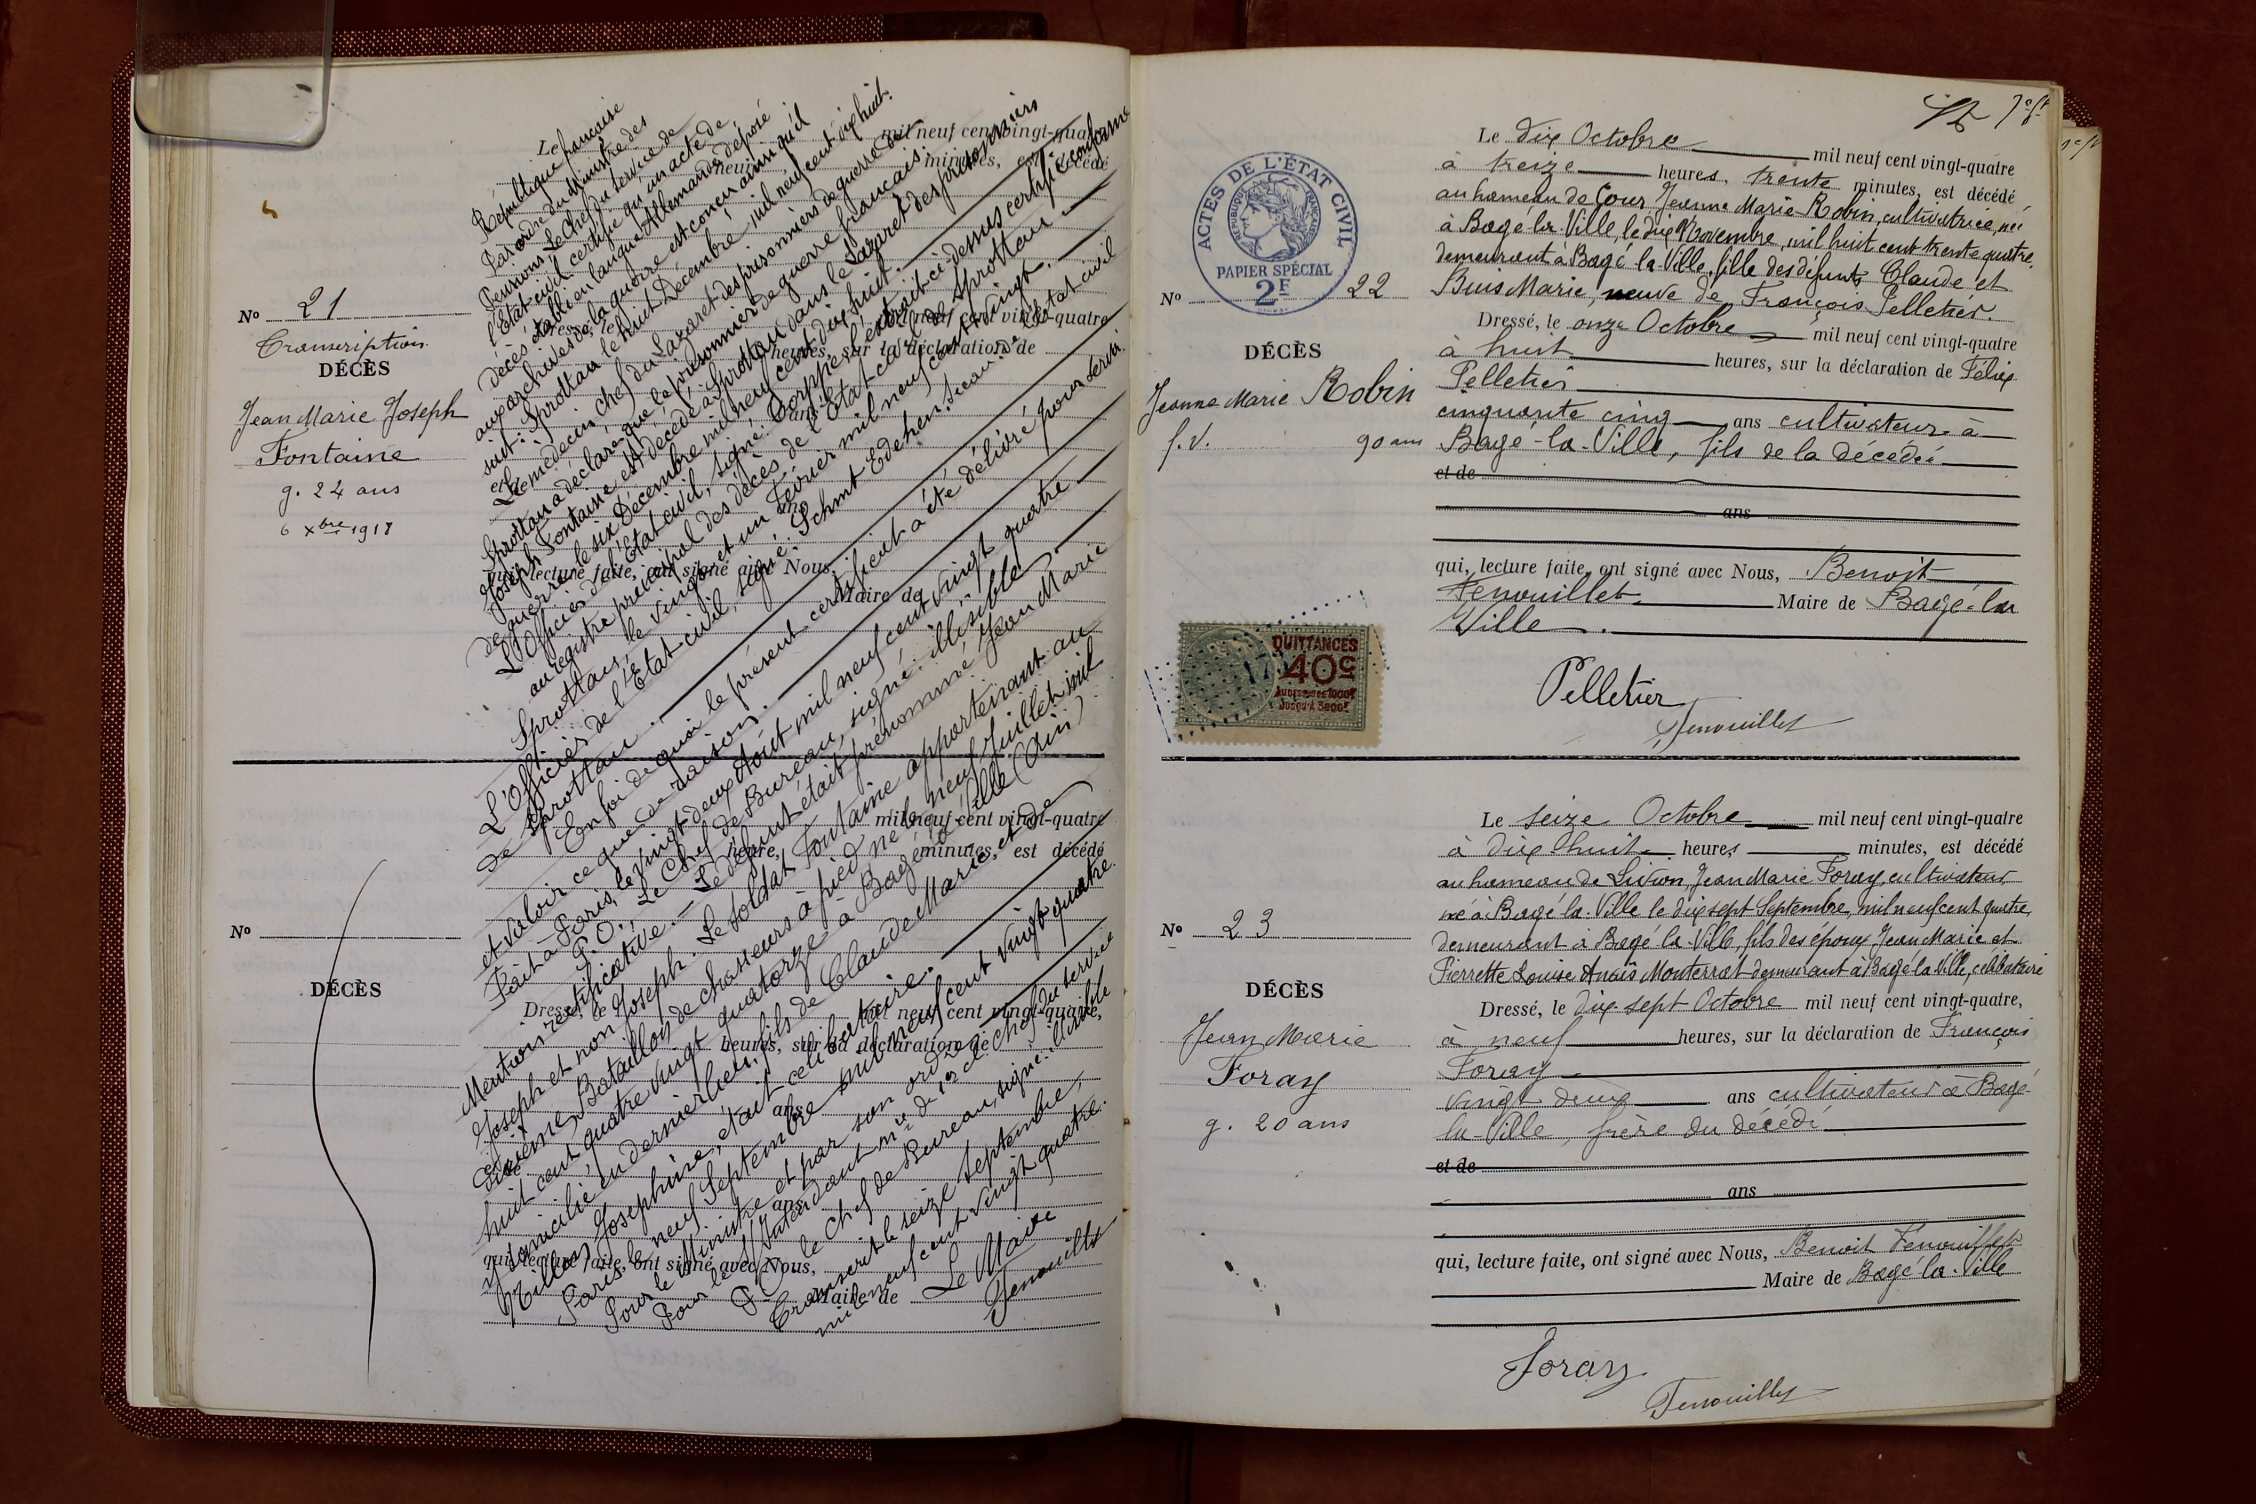 No 21
Transcription
DÉCÈS
Jean Marie Joseph
Fontaine
g. 24 ans
6 Xbre 1918
République française
Par ordre du Ministre des
Pensions. Le Chef du service de
l'État civil certifie qu'un acte de
décès établi en langue Allemande déposé
aux archives de la
est conçu ainsi qu'il
suit: Sprottau, le huit Décembre, mil neuf cent dix huit.
Le médecin chef du Lazaret des prisonniers de guerre de
Sprottau a déclaré que le prisonnier de guerre français:
Joseph Fontaine est décédé à Sprottau dans le Lazaret des prisonniers
de guerre le six Décembre mil neuf cent dix huit.
L'Officier de l'État civil, signé:
l'extrait ci-dessus certifié conforme
au registre principal des décès de l'État civil de Sprottau
Sprottau, le vingt et un Février mil neuf cent vingt.
L'Officier de l'État civil, signé: Schmt
de Sprottau
En foi de quoi le présent certificat a été délivré pour servir
et valoir ce que de raison.
Fait à Paris, le vingt deux Août mil neuf cent vingt quatre
P.O., Le Chef de Bureau, signé: illisible
Mention rectificative. — Le défunt était prénommé Jean Marie
Joseph et non Joseph. Le soldat Fontaine appartenant au
Bataillon de chasseurs à pied né le neuf Juillet mil
huit cent quatre vingt quatorze à Bagé la Ville (Ain)
domicilié en dernier lieu, fils de Claude Marie et de
Joséphine, était célibataire.
Paris, le neuf Septembre mil neuf cent vingt quatre.
Pour le Ministre et par son ordre
Pour le S/Intendant mre de 1re cl. Chef du service
P.O. le Chef de Bureau, signé: illisible
Transcrit le seize septembre,
mil neuf cent vingt quatre.
Le Maire
Fenouillet
Le
mil neuf cent vingt-quatre
minutes, est décédé
Dressé, le
mil neuf cent vingt-quatre
heures, sur la déclaration de
qui, lecture faite, ont signé avec Nous,
Maire de
No
DÉCÈS
mil neuf cent vingt-quatre
heure,
minutes, est décédé
Dressé, le
mil neuf cent vingt-quatre,
heures, sur la déclaration de
ans
ans
qui, lecture faite, ont signé avec Nous,
Maire de
ACTES DE L'ÉTAT CIVIL
RÉPUBLIQUE FRANÇAISE
PAPIER SPÉCIAL
2F
No 22
DÉCÈS
Jeanne Marie Robin
f. V. 90 ans
QUITTANCES
40c
Le dix Octobre mil neuf cent vingt-quatre
à treize heures, trente minutes, est décédé
au hameau de Cour Jeanne Marie Robin, cultivatrice, née
à Bagé-la-Ville, le dix Novembre, mil huit cent trente quatre,
demeurant à Bagé la Ville, fille des défunts Claude et
Buis Marie, veuve de François Pelletier.
Dressé, le onze Octobre mil neuf cent vingt-quatre
à huit heures, sur la déclaration de Félix
Pelletier
cinquante cinq ans cultivateur à
Bagé-la-Ville, fils de la décédée
et de
ans
qui, lecture faite, ont signé avec Nous, Benoit
Fenouillet Maire de Bagé-la
Ville.
Pelletier
Fenouillet
No 23
DÉCÈS
Jean Marie
Foray
g. 20 ans
Le seize Octobre mil neuf cent vingt-quatre
à dix huit heures minutes, est décédé
au hameau de Livron, Jean Marie Foray, cultivateur,
né à Bagé la Ville le dix sept Septembre, mil neuf cent quatre,
demeurant à Bagé la Ville, fils des époux Jean Marie et
Pierrette Louise Anaïs Monterrat demeurant à Bagé la Ville, célibataire
Dressé, le dix sept Octobre mil neuf cent vingt-quatre,
à neuf heures, sur la déclaration de François
Foray
vingt deux ans cultivateur à Bagé-
la-Ville, frère du décédé
et de
ans
qui, lecture faite, ont signé avec Nous, Benoit Fenouillet
Maire de Bagé la-Ville
Foray
Fenouillet